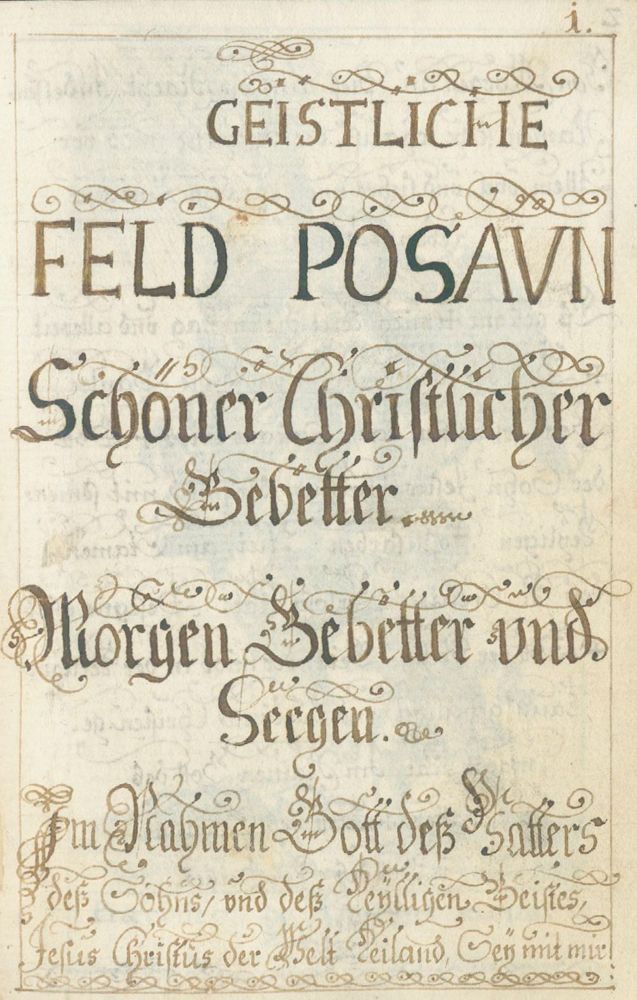 1.
GEISTLICHE
FELD POSAVN
Schöner Christlicher
Gebetter
Morgen Gebetter vnd
Seegen.
Im Nahmen Gott deß Vatters
deß Sohns, vnd deß Heyligen Geistes,
Jesus Christus der Welt Heiland, Sey mit mir